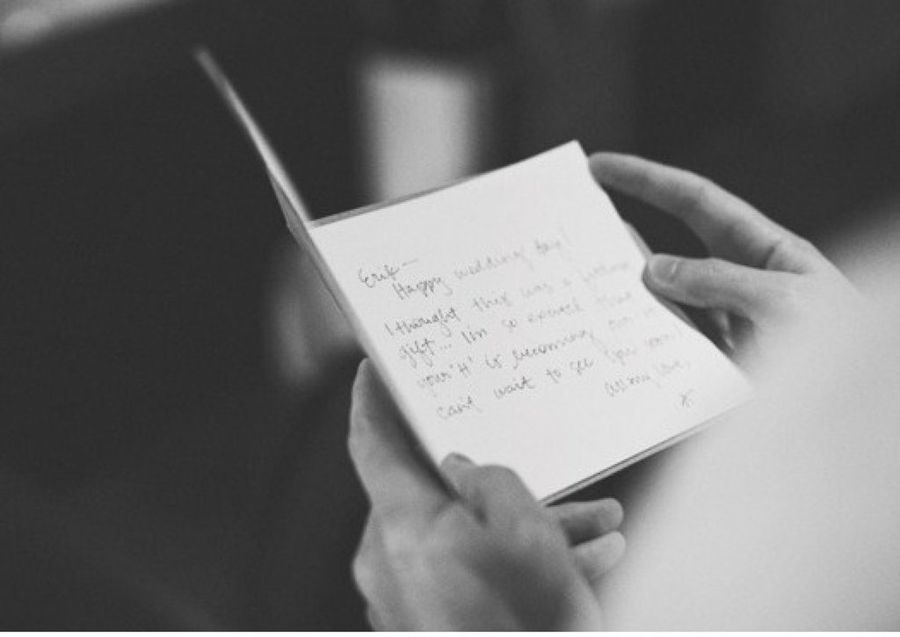 Erik—
Happy wedding day!
I thought this was a
gift... I'm so excited that
your "H" is becoming
can't wait to see you soon!
all my love,